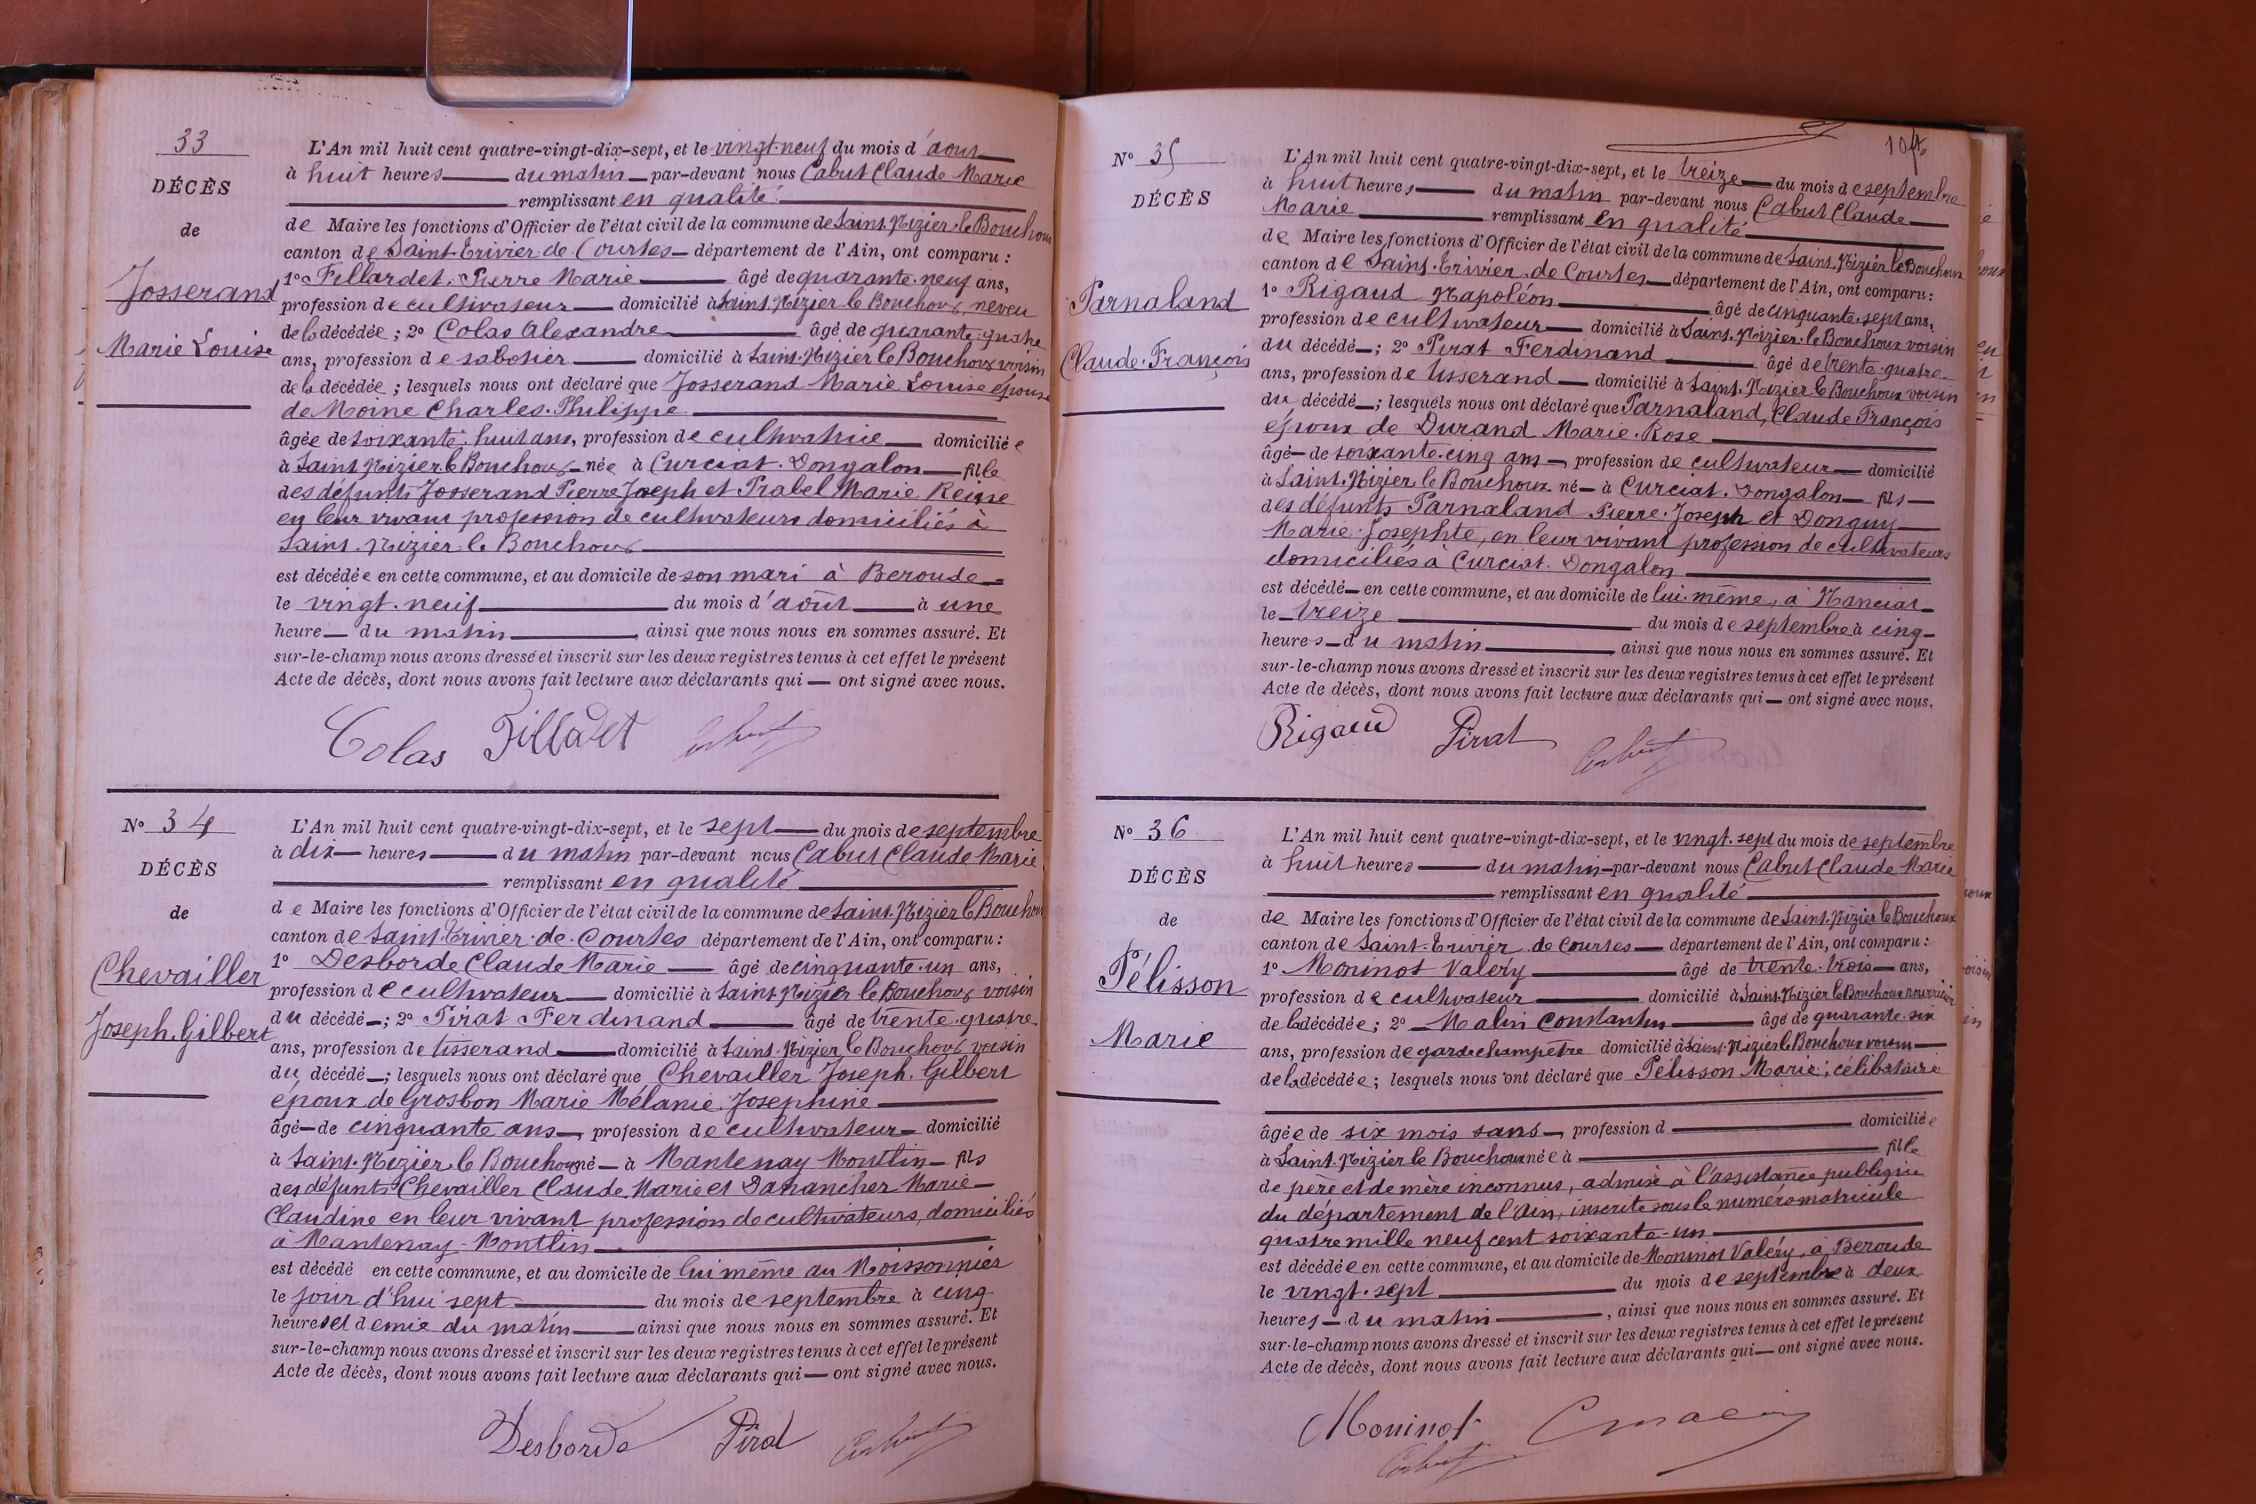 33
DÉCÈS
de
Josserand
Marie Louise
L'An mil huit cent quatre-vingt-dix-sept, et le vingt-neuf du mois d'août
à huit heures du matin par-devant nous Cabut Claude Marie
remplissant en qualité
de Maire les fonctions d'Officier de l'état civil de la commune de Saint-Nizier-le-Bouchoux
canton de Saint-Trivier-de-Courtes département de l'Ain, ont comparu :
1° Fillardet Pierre Marie âgé de quarante-neuf ans,
profession de cultivateur domicilié à Saint-Nizier le Bouchoux, neveu
de la décédée ; 2° Colas Alexandre âgé de quarante-quatre
ans, profession de sabotier domicilié à Saint-Nizier le Bouchoux voisin
de la décédée ; lesquels nous ont déclaré que Josserand Marie Louise épouse
de Moine Charles-Philippe
âgée de soixante-huit ans, profession de cultivatrice domiciliée
à Saint Nizier le Bouchoux née à Curciat-Dongalon fille
des défunts Josserand Pierre Joseph et Prabel Marie Reine
en leur vivant profession de cultivateurs domiciliés à
Saint-Nizier-le Bouchoux
est décédée en cette commune, et au domicile de son mari à Beroude
le vingt-neuf du mois d'août à une
heure du matin, ainsi que nous nous en sommes assuré. Et
sur-le-champ nous avons dressé et inscrit sur les deux registres tenus à cet effet le présent
Acte de décès, dont nous avons fait lecture aux déclarants qui ont signé avec nous.
Colas Fillardet Cabut
N° 34
DÉCÈS
de
Chevailler
Joseph-Gilbert
L'An mil huit cent quatre-vingt-dix-sept, et le sept du mois de septembre
à dix heures du matin par-devant nous Cabut Claude Marie
remplissant en qualité
de Maire les fonctions d'Officier de l'état civil de la commune de Saint-Nizier le Bouchoux
canton de Saint-Trivier-de-Courtes département de l'Ain, ont comparu :
1° Desborde Claude Marie âgé de cinquante-un ans,
profession de cultivateur domicilié à Saint-Nizier le Bouchoux voisin
du décédé ; 2° Pirat Ferdinand âgé de trente-quatre
ans, profession de tisserand domicilié à Saint-Nizier le Bouchoux voisin
du décédé ; lesquels nous ont déclaré que Chevailler Joseph-Gilbert
époux de Grosbon Marie Mélanie Josephine
âgé de cinquante ans, profession de cultivateur domicilié
à Saint-Nizier le Bouchoux né à Mantenay Montlin fils
des défunts Chevailler Claude Marie et Danancher Marie
Claudine en leur vivant profession de cultivateurs, domiciliés
à Mantenay-Montlin
est décédé en cette commune, et au domicile de lui même au Moissonnier
le jour d'hui sept du mois de septembre à cinq
heures et demie du matin ainsi que nous nous en sommes assuré. Et
sur-le-champ nous avons dressé et inscrit sur les deux registres tenus à cet effet le présent
Acte de décès, dont nous avons fait lecture aux déclarants qui ont signé avec nous.
Desborde Pirat Cabut
N° 35
DÉCÈS
Parnaland
Claude-François
L'An mil huit cent quatre-vingt-dix-sept, et le treize du mois de septembre
à huit heures du matin par-devant nous Cabut Claude
Marie remplissant en qualité
de Maire les fonctions d'Officier de l'état civil de la commune de Saint-Nizier le Bouchoux
canton de Saint-Trivier-de Courtes département de l'Ain, ont comparu :
1° Rigaud Napoléon âgé de cinquante-sept ans,
profession de cultivateur domicilié à Saint-Nizier-le Bouchoux voisin
du décédé ; 2° Pirat Ferdinand âgé de trente-quatre
ans, profession de tisserand domicilié à Saint-Nizier le Bouchoux voisin
du décédé ; lesquels nous ont déclaré que Parnaland, Claude François
époux de Durand Marie-Rose
âgé de soixante-cinq ans, profession de cultivateur domicilié
à Saint-Nizier le Bouchoux né à Curciat-Dongalon fils
des défunts Parnaland Pierre-Joseph et Donguy
Marie-Josephte, en leur vivant profession de cultivateurs
domiciliés à Curciat-Dongalon
est décédé en cette commune, et au domicile de lui-même, à Manciat
le treize du mois de septembre à cinq
heures du matin, ainsi que nous nous en sommes assuré. Et
sur-le-champ nous avons dressé et inscrit sur les deux registres tenus à cet effet le présent
Acte de décès, dont nous avons fait lecture aux déclarants qui ont signé avec nous.
Rigaud Pirat Cabut
N° 36
DÉCÈS
de
Pélisson
Marie
L'An mil huit cent quatre-vingt-dix-sept, et le vingt-sept du mois de septembre
à huit heures du matin par-devant nous Cabut Claude Marie
remplissant en qualité
de Maire les fonctions d'Officier de l'état civil de la commune de Saint-Nizier le Bouchoux
canton de Saint-Trivier de Courtes département de l'Ain, ont comparu :
1° Moninot Valéry âgé de trente-trois ans,
profession de cultivateur domicilié à Saint-Nizier le Bouchoux nourricier
de la décédée ; 2° Malin Constantin âgé de quarante-six
ans, profession de garde champêtre domicilié à Saint-Nizier le Bouchoux voisin
de la décédée ; lesquels nous ont déclaré que Pélisson Marie, célibataire
âgée de six mois sans, profession d domiciliée
à Saint-Nizier le Bouchoux née à fille
de père et de mère inconnus, admise à l'assistance publique
du département de l'Ain, inscrite sous le numéro matricule
quatre mille neuf cent soixante-un
est décédée en cette commune, et au domicile de Moninot Valéry, à Beroude
le vingt-sept du mois de septembre à deux
heures du matin, ainsi que nous nous en sommes assuré. Et
sur-le-champ nous avons dressé et inscrit sur les deux registres tenus à cet effet le présent
Acte de décès, dont nous avons fait lecture aux déclarants qui ont signé avec nous.
Moninot Cmalin
Cabut